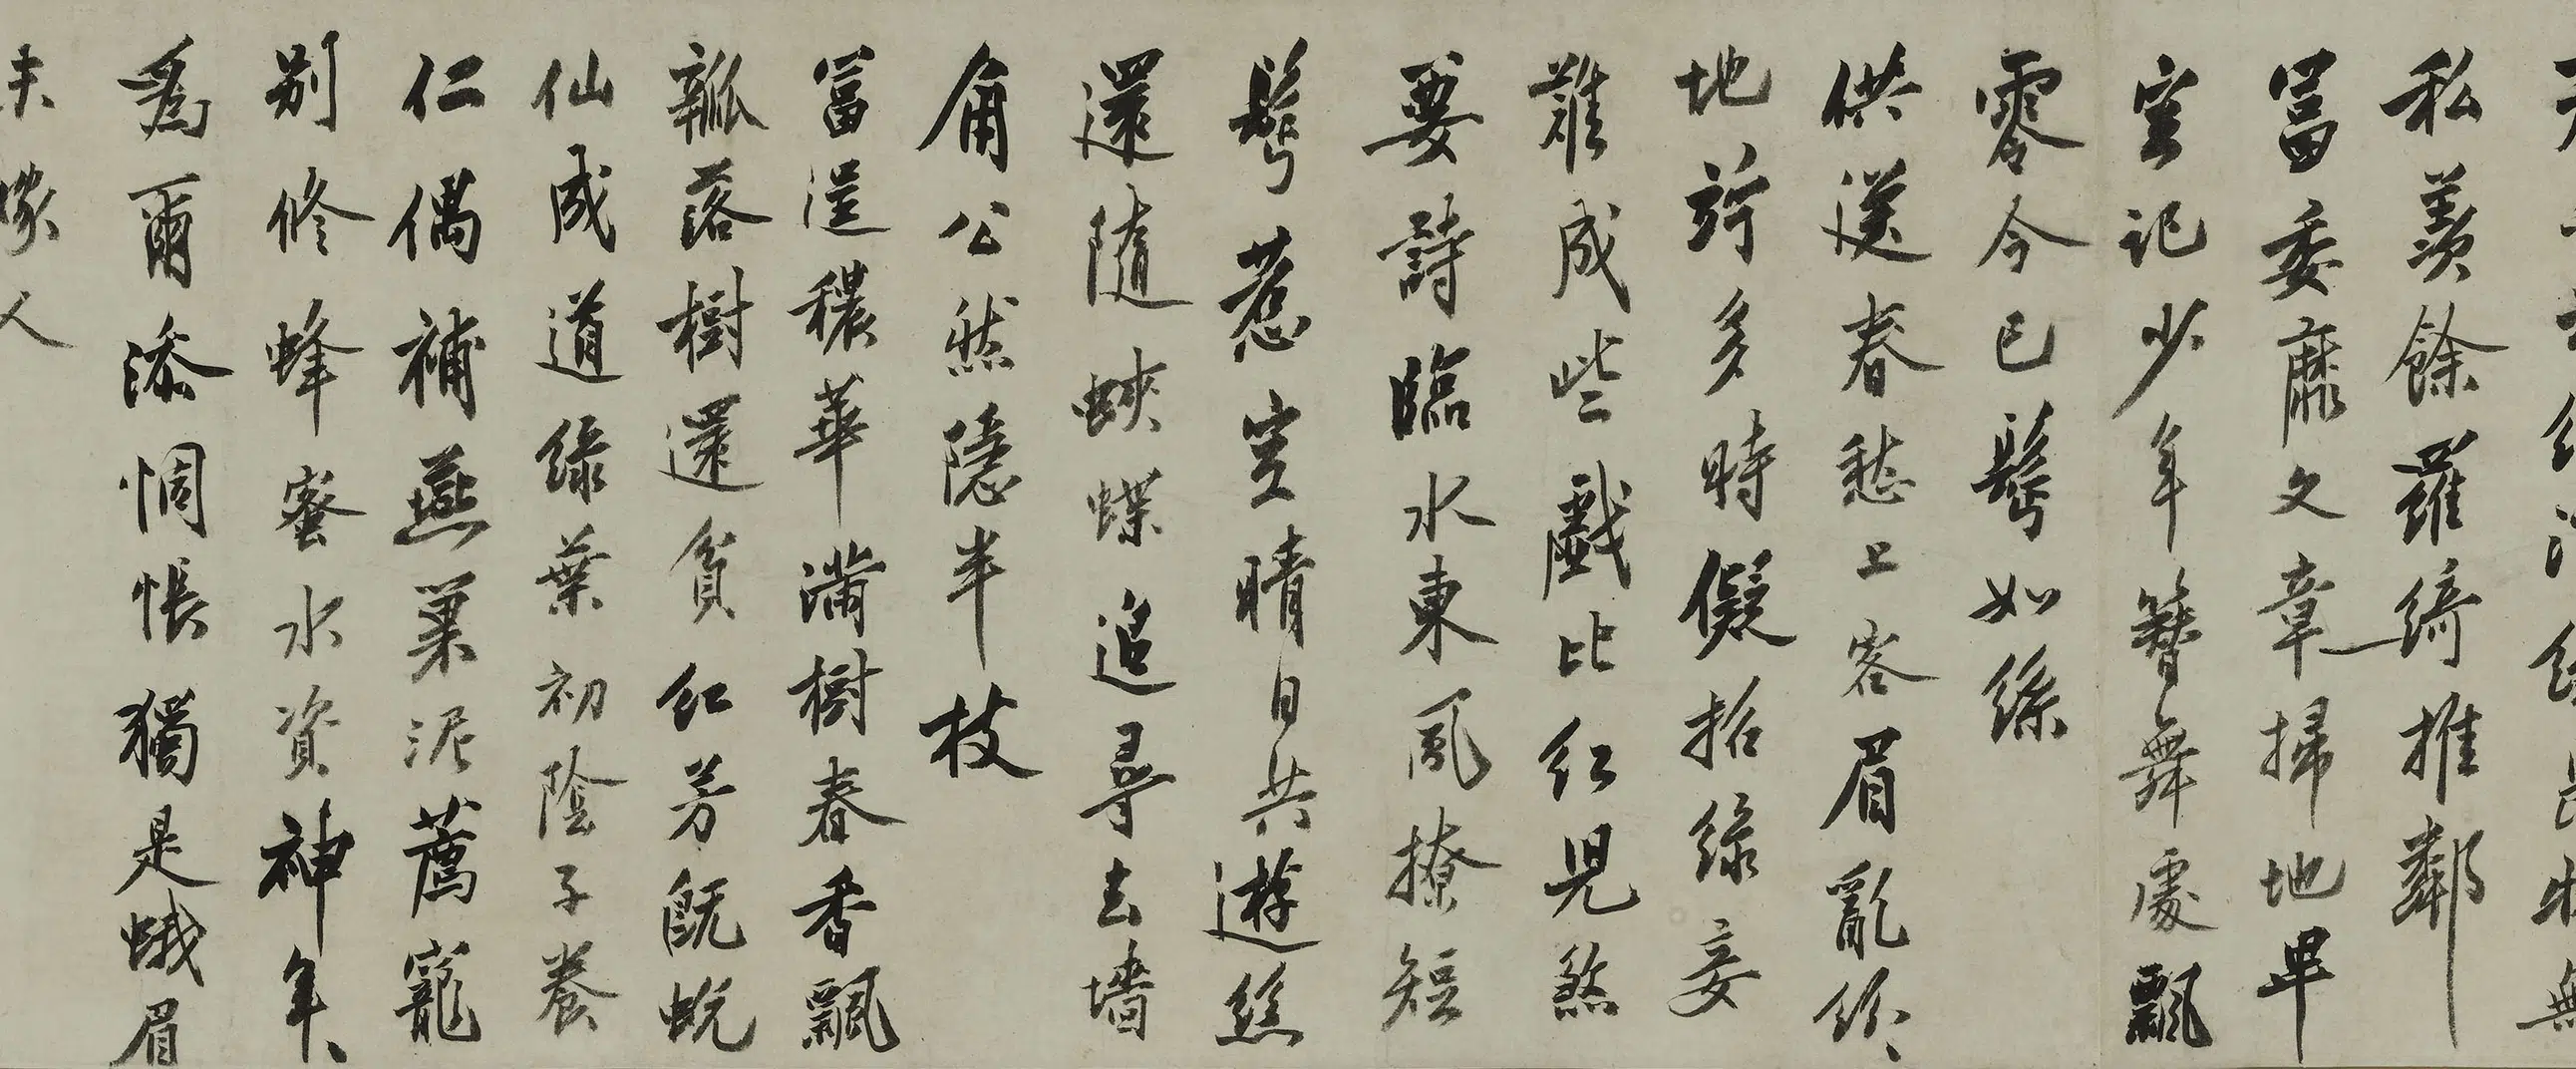 無
私羨餘羅綺推鄰
富委靡文章掃地卑
空記少年簪舞處飄
零今已鬢如絲
供送春愁上客眉亂紛、
地竚多時儗招綠妾
難成些戲比紅兒煞
要詩臨水東風撩短
鬢惹空晴日共遊絲
還隨蛺蝶追尋去墻
角公然隱半枝
富逞穠華滿樹春香飄
瓣落樹還貧紅芳既蛻
仙成道綠葉初陰子養
仁偶補燕巢泥薦寵
別修蜂蜜水資神年、
為爾添惆悵獨是蛾眉
未嫁人